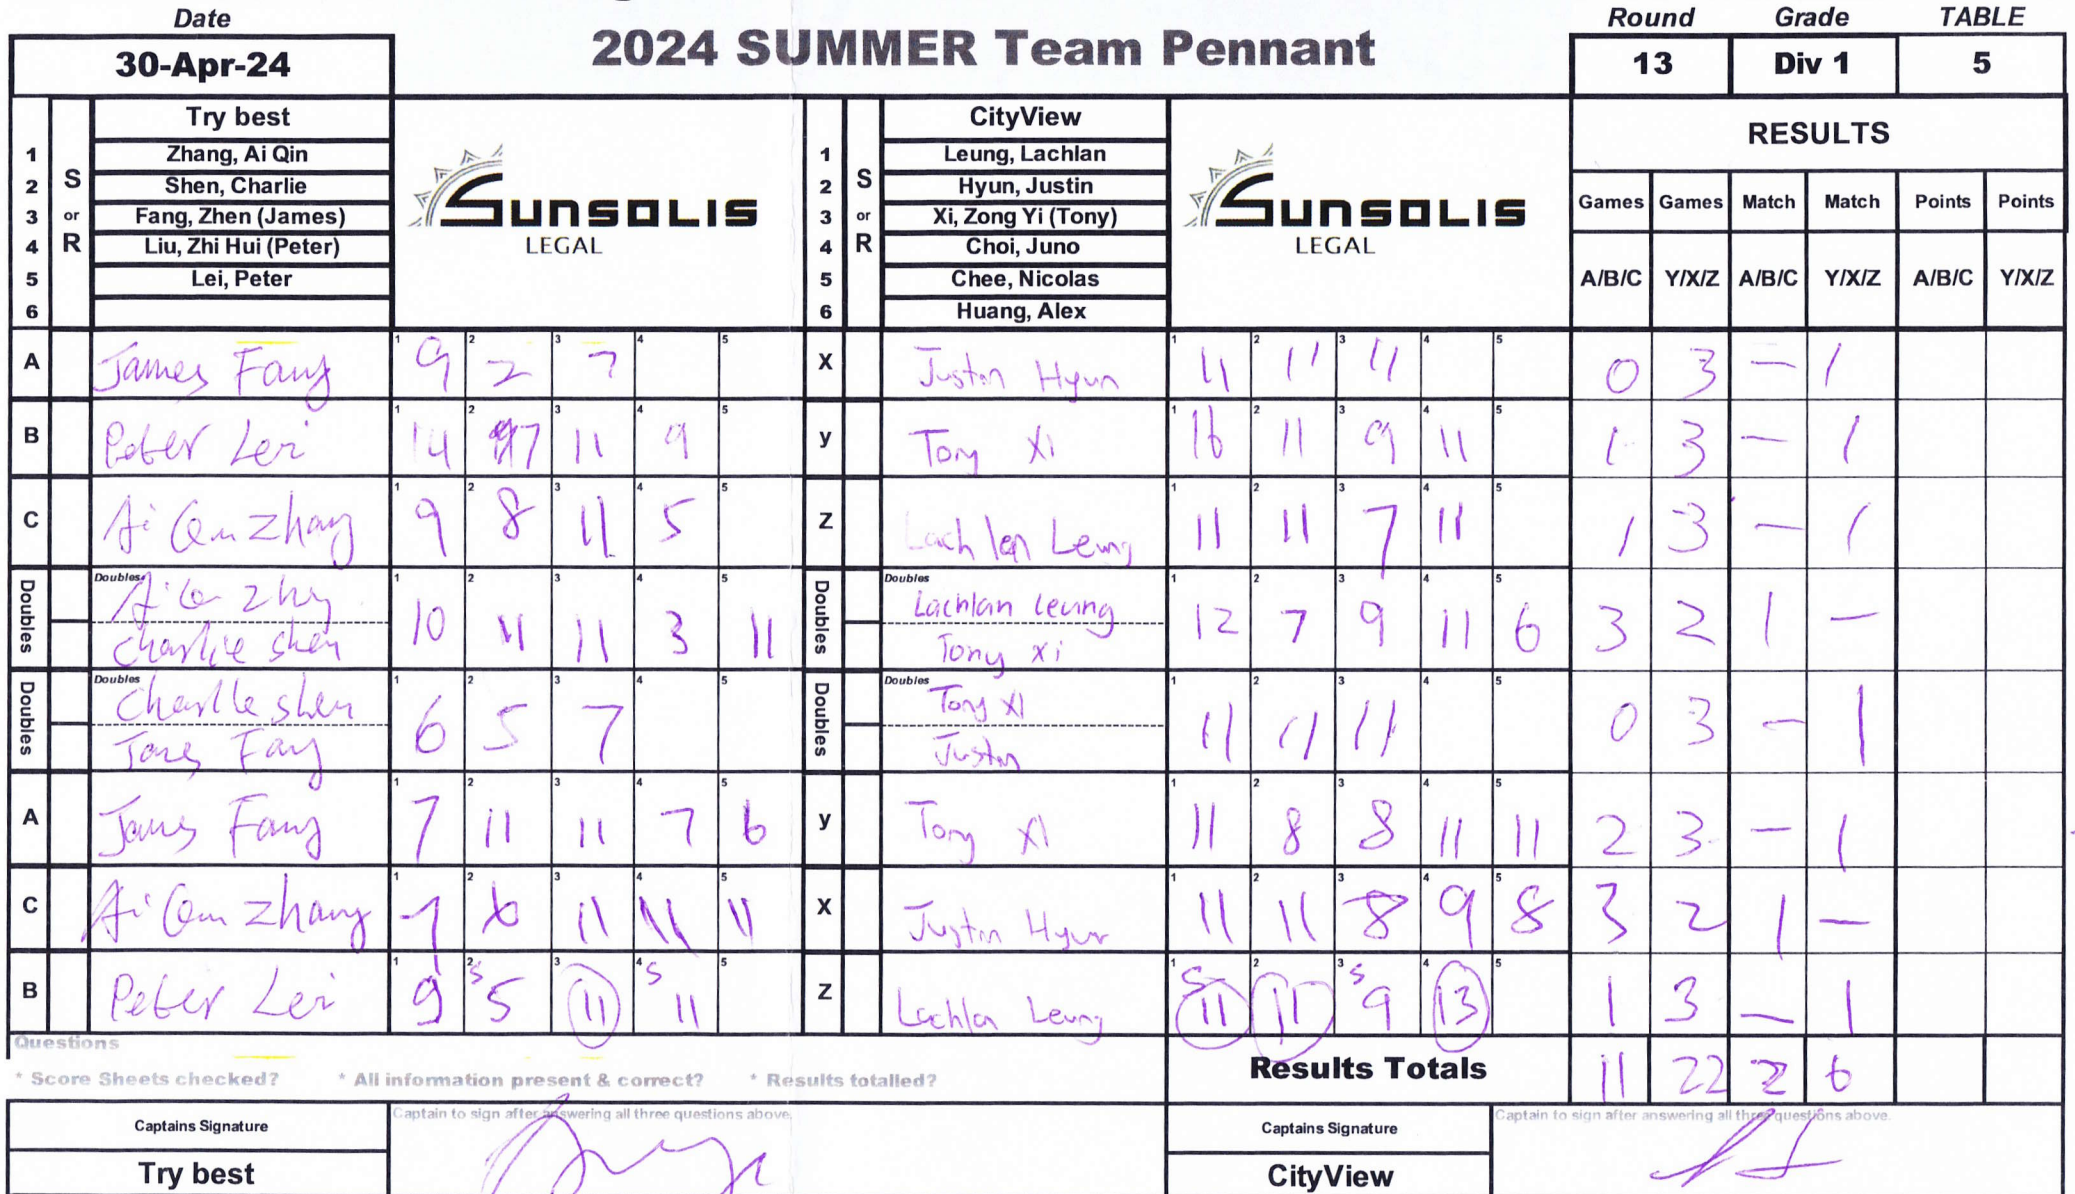 Date
30-Apr-24
2024 SUMMER Team Pennant
Round Grade TABLE
13 Div 1 5
S or R
Try best
1 Zhang, Ai Qin
2 Shen, Charlie
3 Fang, Zhen (James)
4 Liu, Zhi Hui (Peter)
5 Lei, Peter
6
SUNSOLIS
LEGAL
S or R
CityView
1 Leung, Lachlan
2 Hyun, Justin
3 Xi, Zong Yi (Tony)
4 Choi, Juno
5 Chee, Nicolas
6 Huang, Alex
SUNSOLIS
LEGAL
RESULTS
Games Games Match Match Points Points
A/B/C Y/X/Z A/B/C Y/X/Z A/B/C Y/X/Z
A James Fang 9 2 7 X Justin Hyun 11 11 11 0 3 — 1
B Peter Lei 14 7 11 9 y Tony Xi 16 11 9 11 1 3 — 1
C Ai Qin Zhang 9 8 11 5 Z Lachlan Leung 11 11 7 11 1 3 — 1
Doubles Doubles Ai Qin Zhang 10 11 11 3 11 Doubles Doubles Lachlan Leung 12 7 9 11 6 3 2 1 —
Charlie Shen Tony Xi
Doubles Doubles Charlie Shen 6 5 7 Doubles Doubles Tony XI 11 11 11 0 3 — 1
James Fang Justin
A James Fang 7 11 11 7 6 y Tony XI 11 8 8 11 11 2 3 — 1
C Ai Qin Zhang 7 6 11 11 11 X Justin Hyun 11 11 8 9 8 3 2 1 —
B Peter Lei 9 S 5 11 S 11 Z Lachlan Leung S 11 11 S 9 13 1 3 — 1
Questions
* Score Sheets checked? * All information present & correct? * Results totalled?
Results Totals 11 22 2 6
Captains Signature Captain to sign after answering all three questions above.
Try best
Captains Signature Captain to sign after answering all three questions above.
CityView